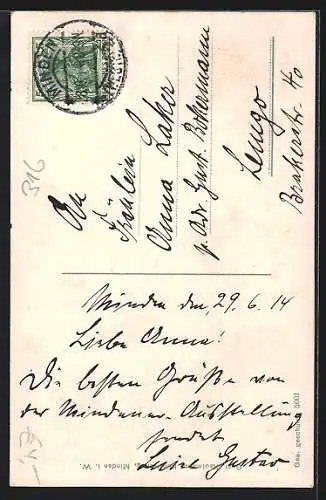 An
Fräulein
Anna Laker
p. Adr. Gust. Bökermann
Lemgo
Brakerstr. 40
Minden den, 29. 6. 14
Liebe Anna!
Die besten Grüße von
der Mindener-Ausstellung
sendet
Gustav
316
MINDEN
Minden i. W.
Ges. geschützt 5001